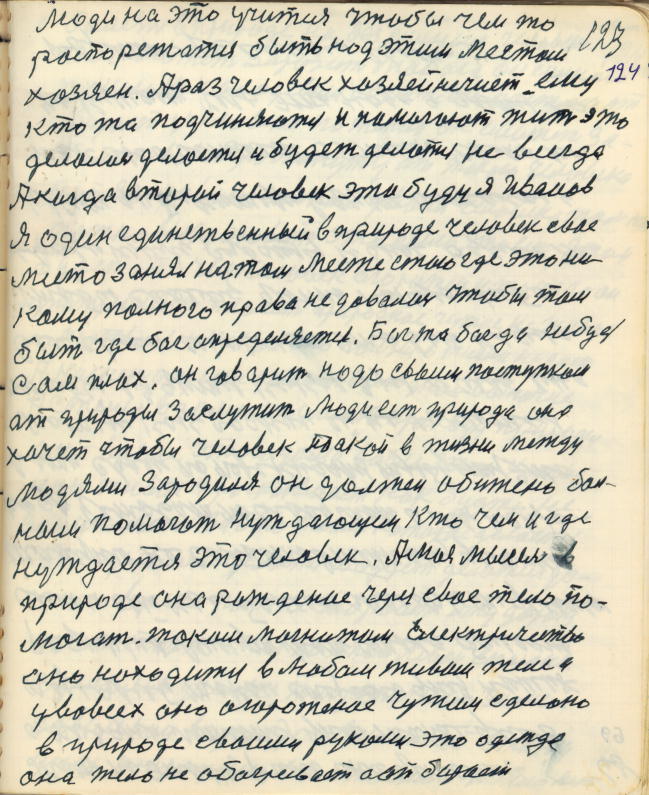 Люди на это учится чтобы чем то 123
распорежатся быть над этим местом 124
хозяен. А раз человек хозяйничиет ему
кто та подчиняются и помогают жит это
делалася делается и будет делатся не всегда
А когда второй человек это буду я Иванов
Я один единственный в природе человек свое
место занял на том месте стою где это ни
кому полного права не довалося чтобы там
быт где бог определяется. Бог та бог да не буд
сам плох. он говорит надо своим поступком
от природы заслужит Людиет природа она
хочет чтобы человек такой в жизни между
людями зародился он должен обижено бол-
ным помогат нуждающем кто чем и где
нуждается это человек. А моя мысля в
природе она рождение через свое тело по-
могат. таком магнитом електричество
оно находится в любом живом теле а
у вовсех оно огорожаное чужим сделано
в природе своими руками это одежда
она тело не обогревает а от бирает